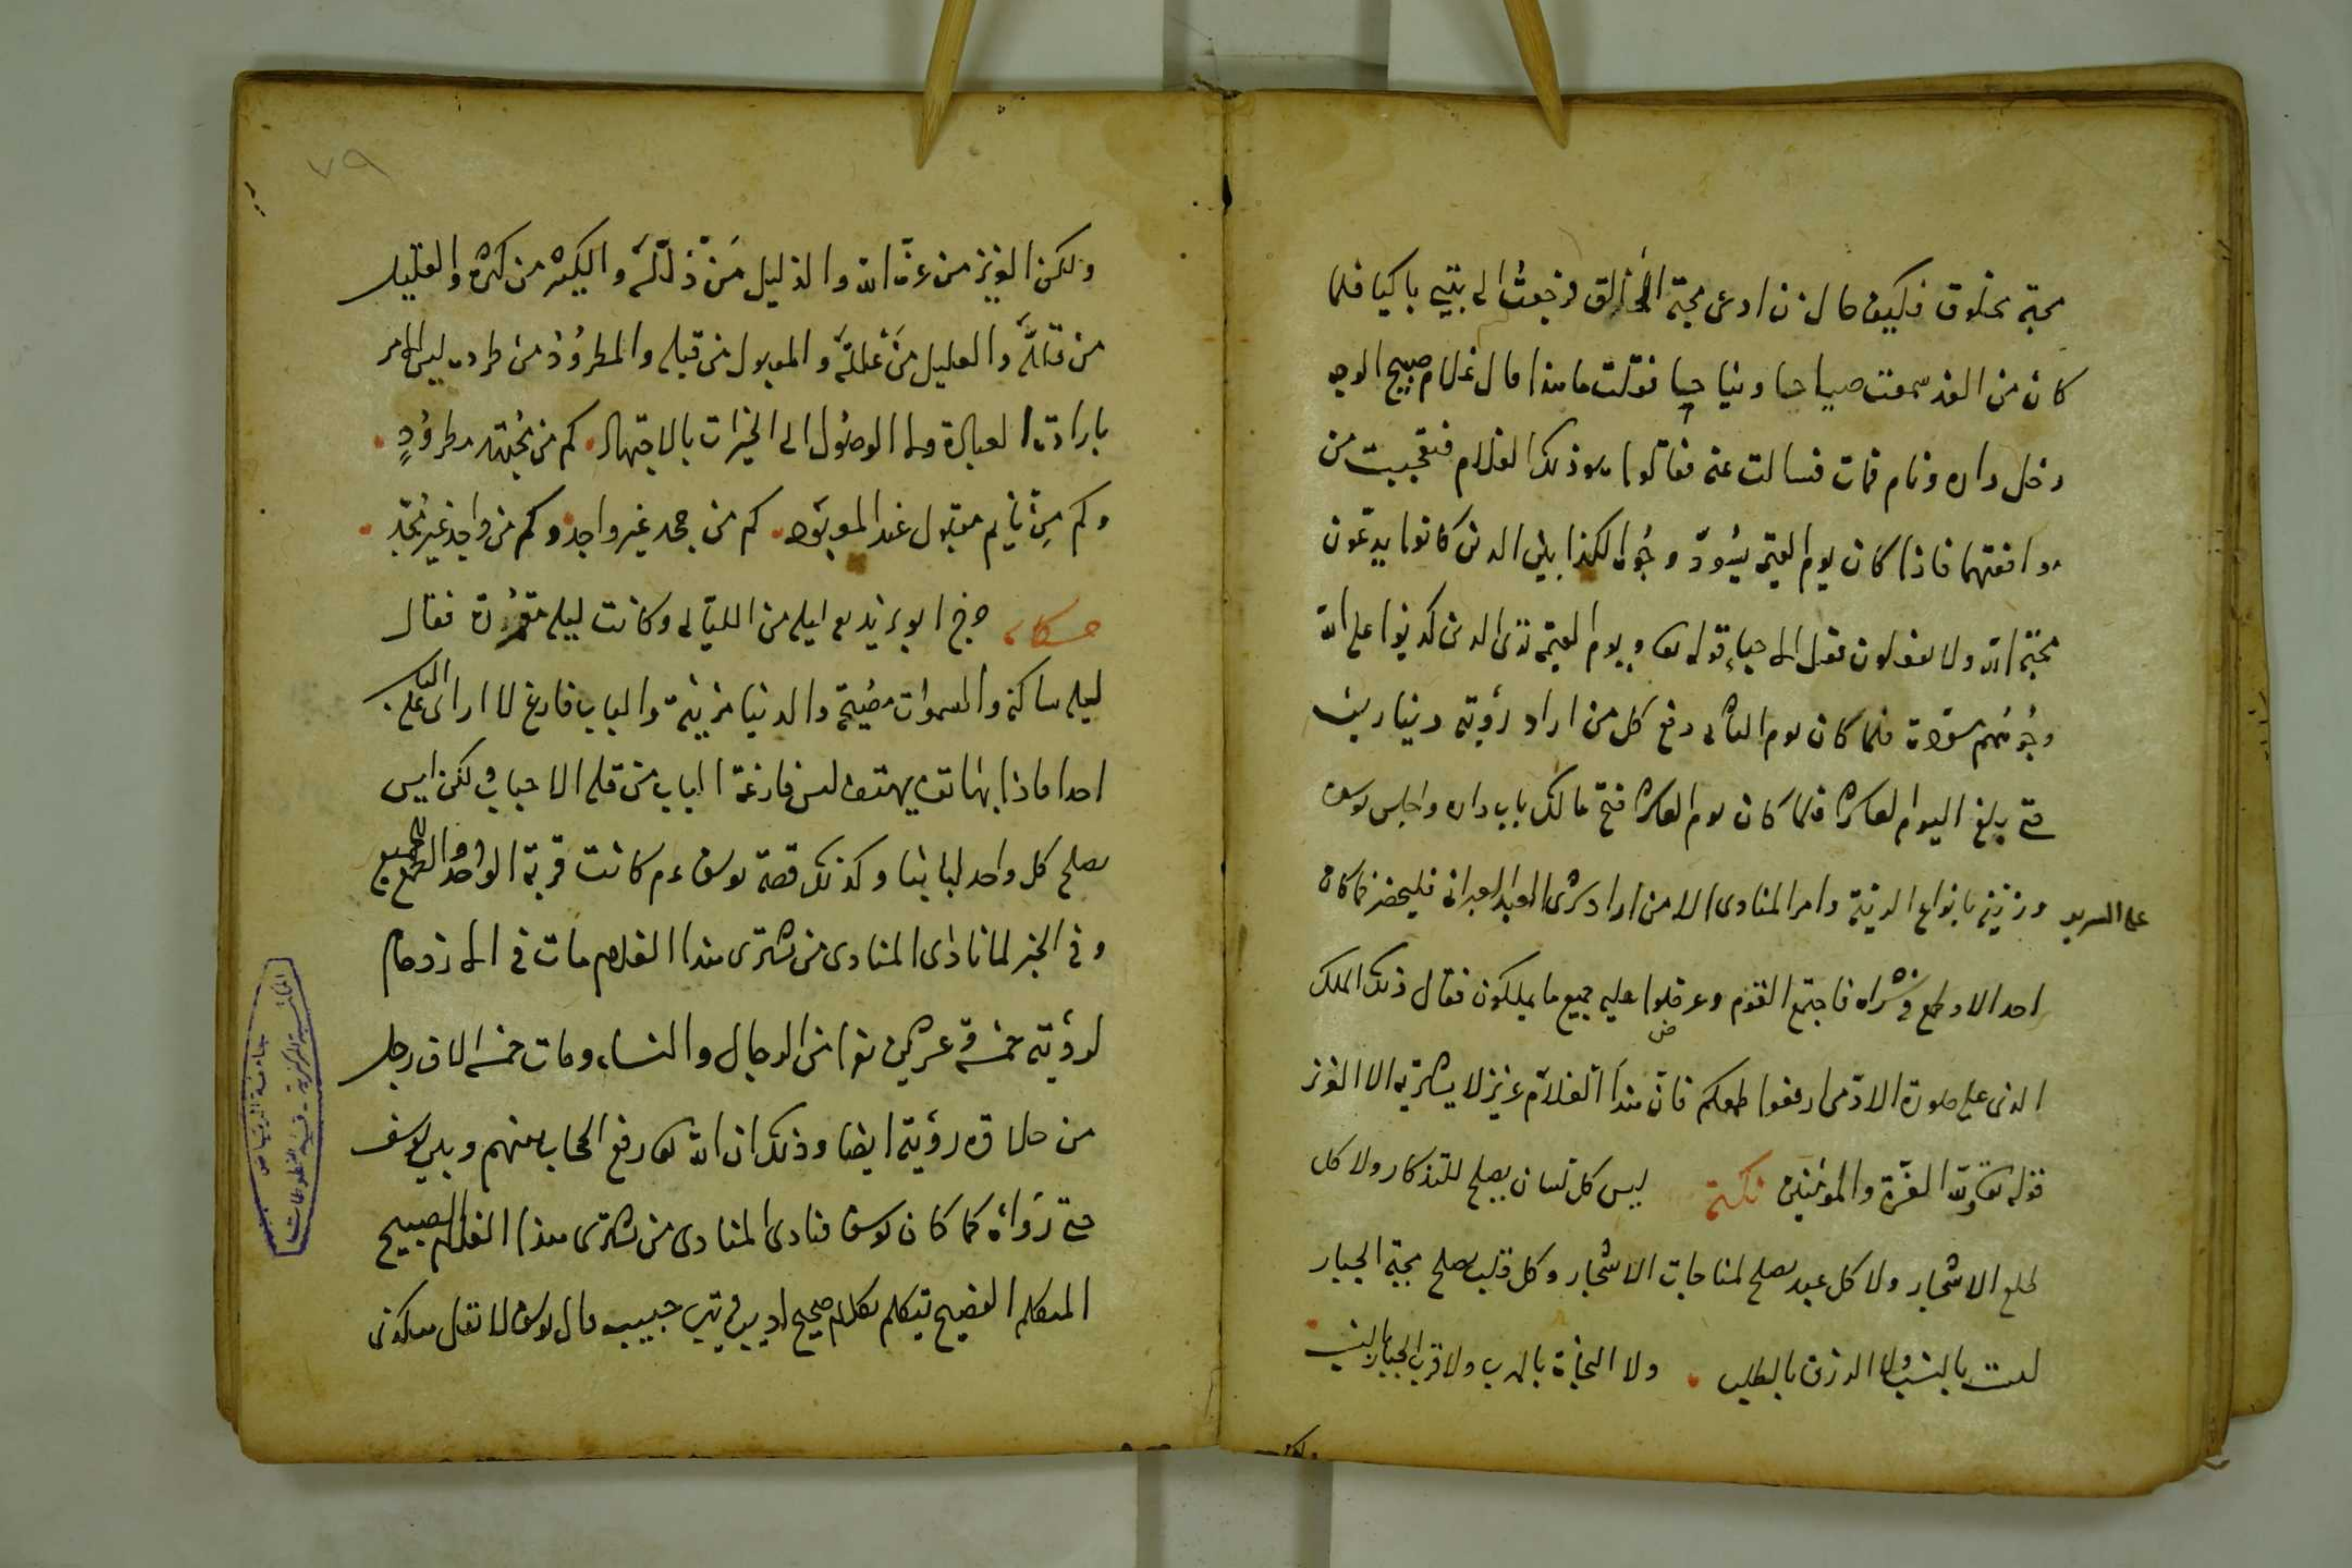 محبة مخلوق فكيف حال من ادعى محبة الخالق فرجعت الى بيتي باكيا فلما
كان من الغد سمعت صياحا ونياحا فقلت ما هذا قال غلام صبيح الوجه
دخل داره ونام فمات فسالت عنه فقالوا هو ذلك الغلام فتعجبت من
موافقتهما فاذا كان يوم القيمة يسود وجوه الكذابين الذين كانوا يدعون
محبة الله ولا يفعلون فعل الاحباء قوله تعا ويوم القيمة ترى الذين كذبوا على الله
وجوههم مسودة فلما كان يوم الثانى دفع كل من اراد رؤيته دينارين
حتى بلغ اليوم العاشر فلما كان يوم العاشر فتح مالك باب داره واجلس يوسف
على السرير وزينه بانواع الزينة وامر المنادى الا من اراد شرى العبد العبرانى فليحضر فما كان
احد الا وطمع فى شراه فاجتمع القوم وعرضوا عليه جميع ما يملكون فقال ذلك الملك
الذى على صورة الادمى ارفعوا طمعكم فان هذا الغلام عزيز لا يشتريه الا العزيز
قوله تعا ولله العزة والمؤمنين نكتة ليس كل لسان يصلح للتذكار ولا كل
طلع الاشجار ولا كل عبد يصلح لمناجات الاسحار وكل قلب يصلح محبة الجبار
ليست بالنسب ولا الرزق بالطلب ولا النجاة بالهرب ولا قرب الجبار بالنسب
ولكن
٧٩
ولكن العزيز من عزه الله والذليل من ذلله والكبير من كبره والقليل
من قلله والعليل من علله والمقبول من قبله والمطرود من طرده ليس الامر
بارادت العبادة ولا الوصول الى الخيرات بالاجتهاد كم من مجتهد مطرود
وكم من نايم مقبول عند المعبود كم من مجد غير واجد وكم من واجد غير مجد
حكاية خرج ابو يزيد ليلة من الليالى وكانت ليلة مقمرة فقال
ليلة ساكنة والسموات مضيئة والدنيا مزينة والباب فارغ لا ارى على الباب
احدا فاذا بهاتف يهتف ليس فارغة الباب من قلة الاحباب ولكن ليس
يصلح كل واحد لبابنا وكذلك قصة يوسف ءم كانت قربة الواحد والطمع للجميع
وفى الخبر لما نادى المنادى من يشترى هذا الغلام مات فى الازدحام
لرؤيته خمسة وعشرين نفرا من الرجال والنساء ومات خمسة الاف رجل
من حلاوة رؤيته ايضا وذلك ان الله تعا رفع الحجاب بينهم وبين يوسف
حتى رواه كما كان يوسف فنادى المنادى من يشترى هذا الغلام الصبيح
المتكلم الفصيح يتكلم بكلام صحيح اديب قريب حبيب قال يوسف لا تقل هكذى
جامعة الرياض
المكتبة المركزية - قسم المخطوطات